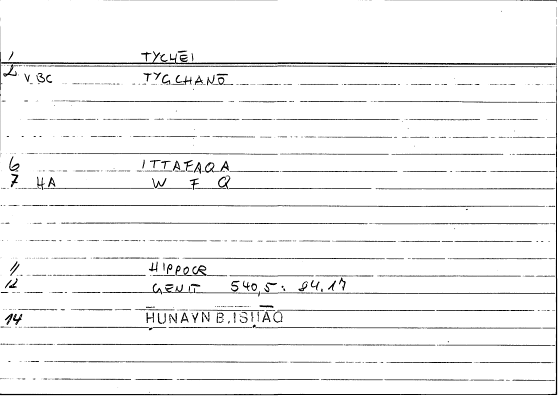 1 TYCHEĪ
2 V.BC TYGCHANŌ
6 ITTAFAQA
7 HA W F Q
11 HIPPOCR
12 GENIT 540,5: 94.17
14 ḤUNAYN B.ISḤĀQ